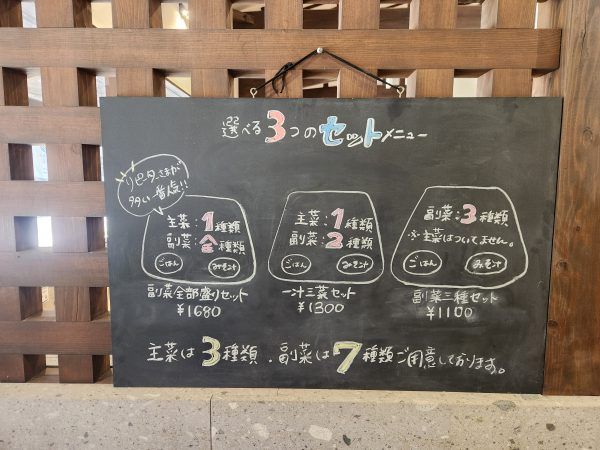 選べる3つのセットメニュー
リピーターさまが
多い一番人気!!
主菜:1種類
副菜:全種類
ごはん
みそ汁
副菜全部盛りセット
¥1680
主菜:1種類
副菜:2種類
ごはん
みそ汁
一汁三菜セット
¥1300
副菜:3種類
※主菜はついてません。
ごはん
みそ汁
副菜三種セット
¥1100
主菜は3種類、副菜は7種類ご用意しております。